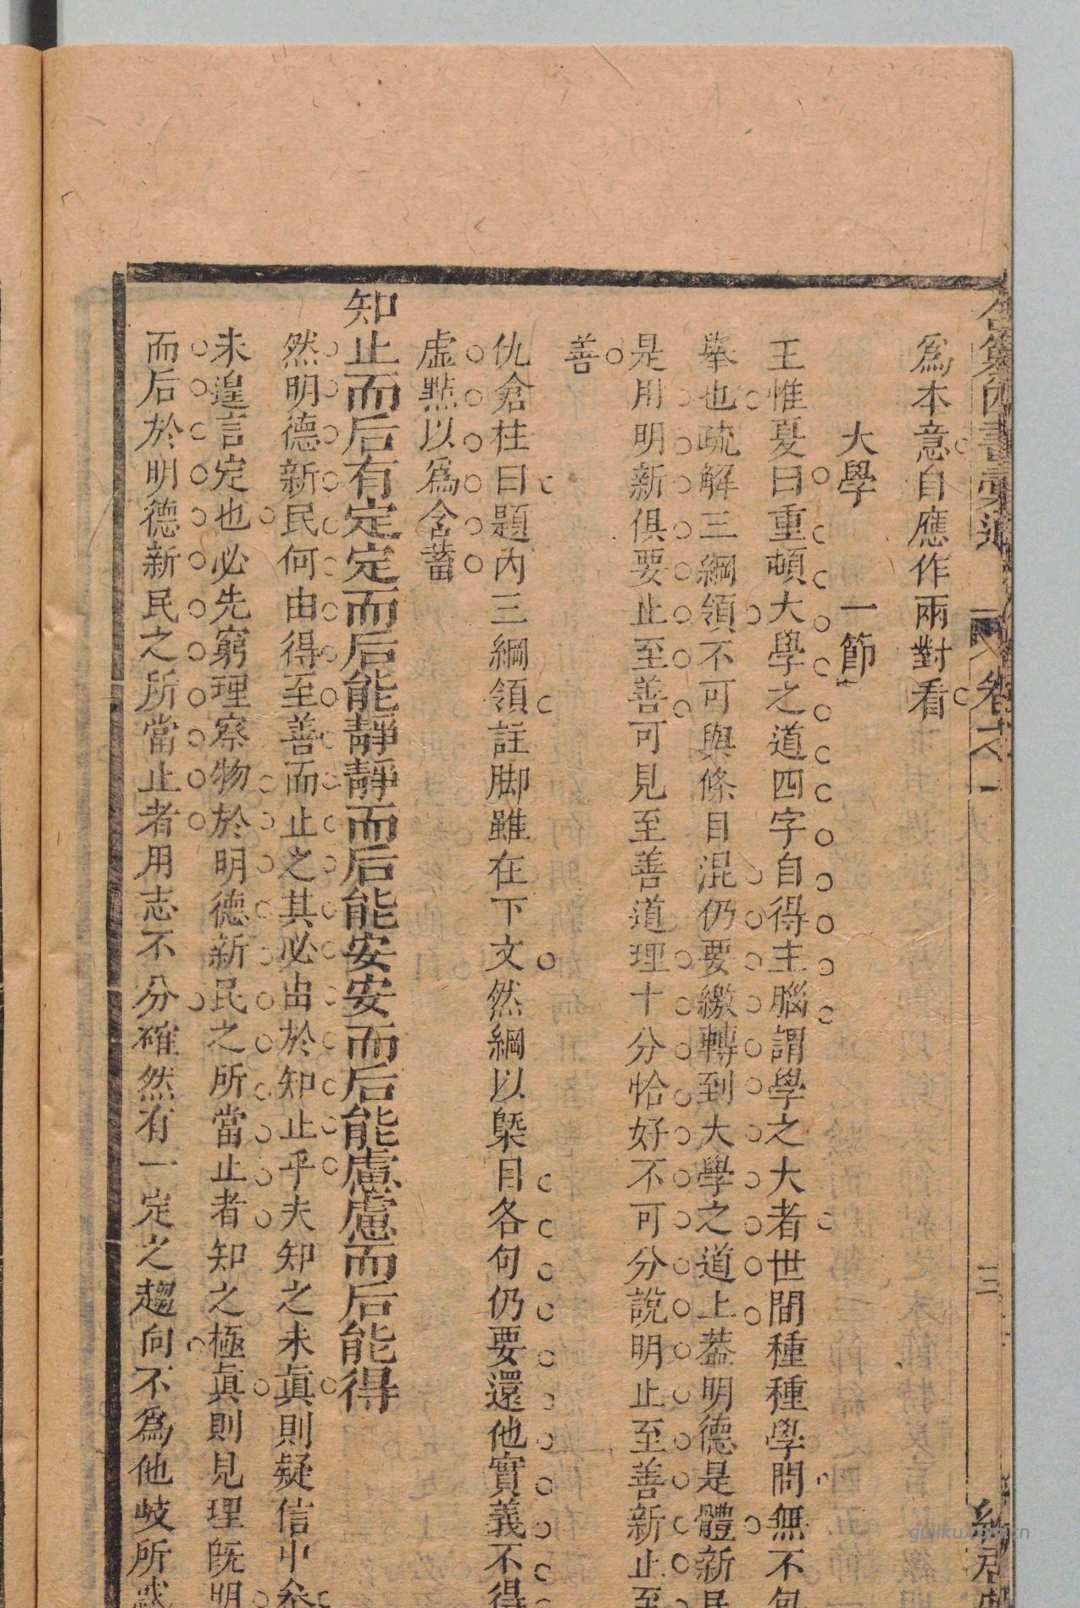 爲本意自應作兩對看
大學 一節
王惟夏曰重頓大學之道四字自得主腦謂學之大者世間種種學問無不包
舉也疏解三綱領不可與條目混仍要繳轉到大學之道上葢明德是體新民
是用明新俱要止至善可見至善道理十分恰好不可分說明止至善新止至
善
仇倉柱曰題内三綱領註脚雖在下文然綱以槩目各句仍要還他實義不得
虛㸃以爲含蓄
知止而后有定定而后能靜靜而后能安安而后能慮慮而后能得
然明德新民何由得至善而止之其必由於知止乎夫知之未眞則疑信中叅
未遑言定也必先窮理察物於明德新民之所當止者知之極眞則見理旣明
而后於明德新民之所當止者用志不分確然有一定之趨向不爲他歧所惑
四書
卷之一
三
guji​ku.com.cn